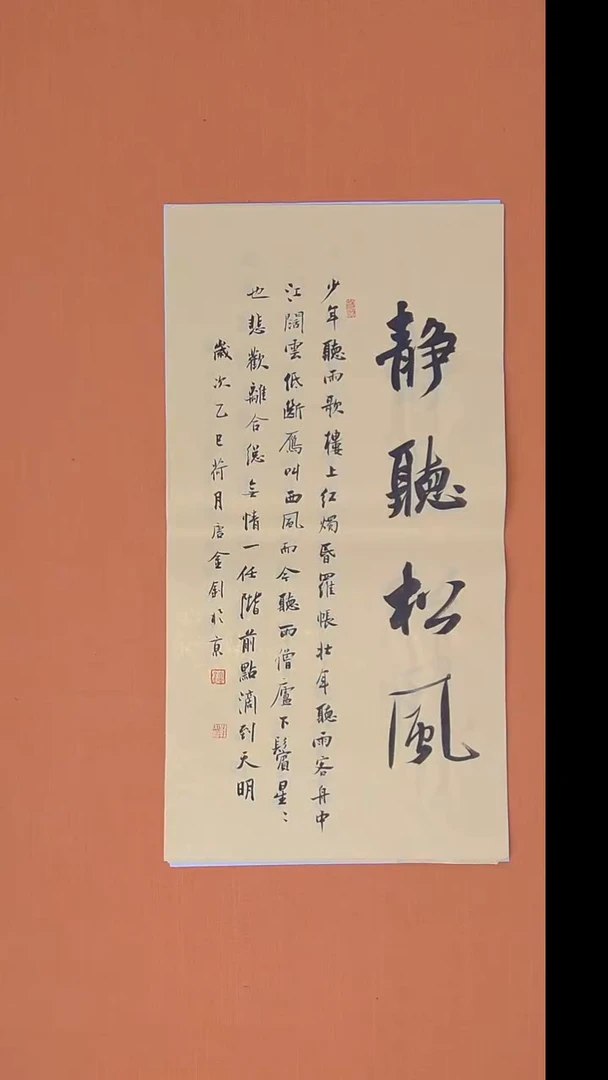 静聽松風
少年聽雨歌樓上紅燭昏羅帳壯年聽雨客舟中
江闊雲低斷鴈叫西風而今聽雨僧廬下鬢星〻
也悲歡離合總無情一任階前點滴到天明
歲次乙巳荷月唐金於京